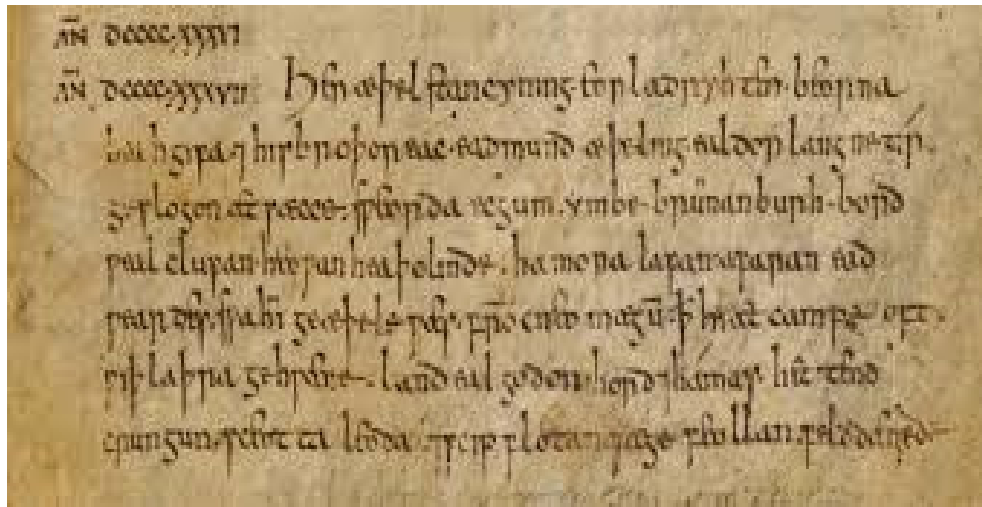 AN̄ DCCCC.XXXVI
AN̄ DCCCC.XXXVII Her æþelstan cyning. eorla dryhten. beorna
beahgifa. ⁊ his broþor eac. eadmund æþeling. ealdor langne tír.
geslogon æt sæcce. sƿeorda ecgum. ymbe brunanburh. bord
ƿeal clufan. heoƿan heaþolinde. hamora lafan. afaran ead
ƿeardes. sƿa hī geæþele ƿæs. frō cneo magū. ꝥ hi æt campe oft.
ƿiþ laþra gehƿæne. land ealgodon. hord ⁊ hamas. hettend
crungun. sceotta leoda. ⁊ scip flotan. fæge feollan. feld dænnede